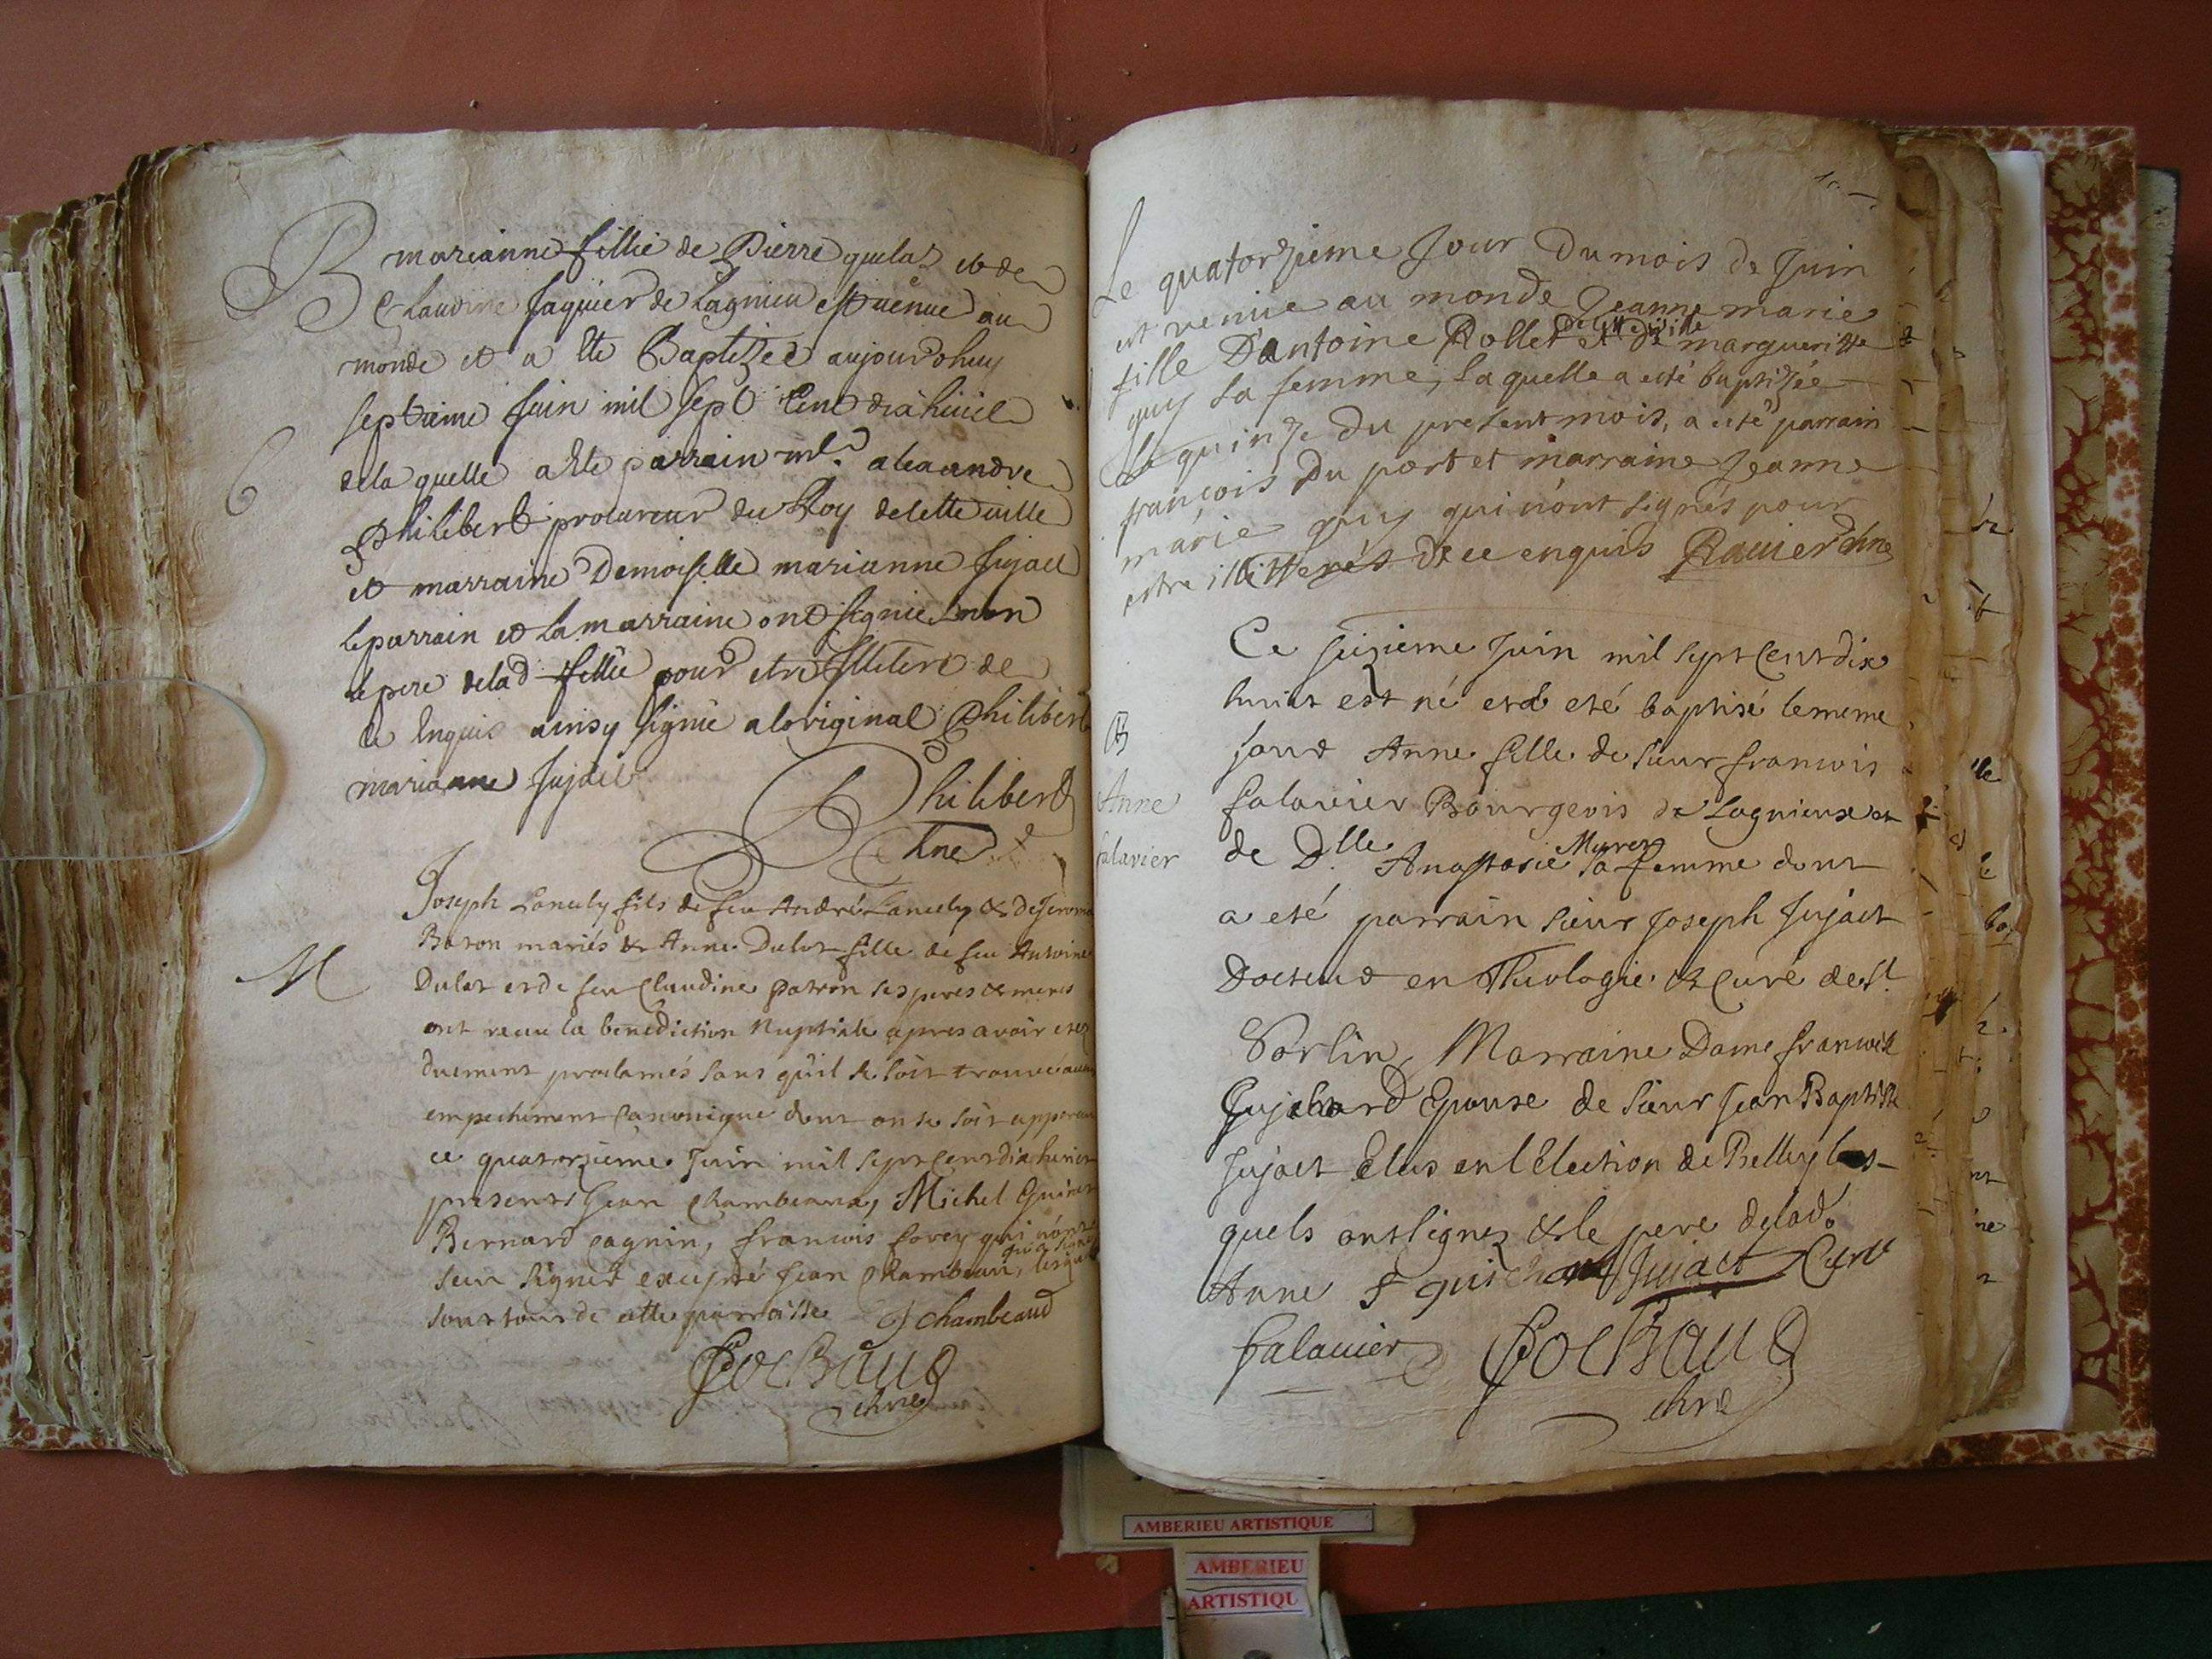 B
marianne fillie de Pierre quelat et de
Claudine Jaquier de Lagnieu est uenue au
monde et a ete Baptizee aujourdhuy
septieme Juin mil sept Cent dixhuict
6
dela quelle a ete parrain mr alexandre
Philibert procureur du Roy de cette uille
et marraine Demoiselle marianne Jujact
le parrain et la marraine ont signie non
le pere delad fillie pour etre Illitere de
ce Enquis ainsy signie a loriginal Philibert
marianne Jujact
Philibert
chne
M
Joseph Lancely fils de feu André Lancely & de Jerome
Baton mariés & Anne Dulot fille de feu Antoine
Dulot et de feu Claudine patron ses peres & meres
ont recu la benediction Nuptiale apres avoir etez
duement proclamés sans qu'il se soit trouvé aucun
empechement Canonique dont on se soit apperceu
ce quatorzieme Juin mil sept Cent dix huict
presents Jean Chambeaud, Michel
Bernard cagnin, francois forey qui n'ont
sceu signer excepté Jean Chambeau,
sont tous de cette parroisse J chambeaud
chne
Le quatorzieme Jour Du mois de Juin
est venüe au monde Jeanne marie
de cette ville
fille D'antoine Rollet et de marguerittte
guy sa femme, laquelle a esté baptizée
le quinze du present mois, a esté parrain
françois Du port et marraine Jeanne
marie guy qui n'ont signés pour
estre illitterés de ce enquis Rauier chne
Ce seizieme Juin mil sept Cent dix
huict est né et a eté baptisé le meme
B
jour Anne fille de sieur francois
Anne
falavier Bourgeois de Lagnieux et
falavier
Muret
de Dlle Anastasie sa femme dont
a eté parrain sieur Joseph Jujact
Docteur en Theologie & Curé de St
Sorlin, Marraine Dame francoise
Gujchard Epouse de sieur Jean Baptiste
Jujact Elus en l'Election de Belley les-
quels ont signez & le pere delad.
Anne f guichard Jujact Curé
falauier
chne
AMBERIEU ARTISTIQUE
AMBERIEU
ARTISTIQU